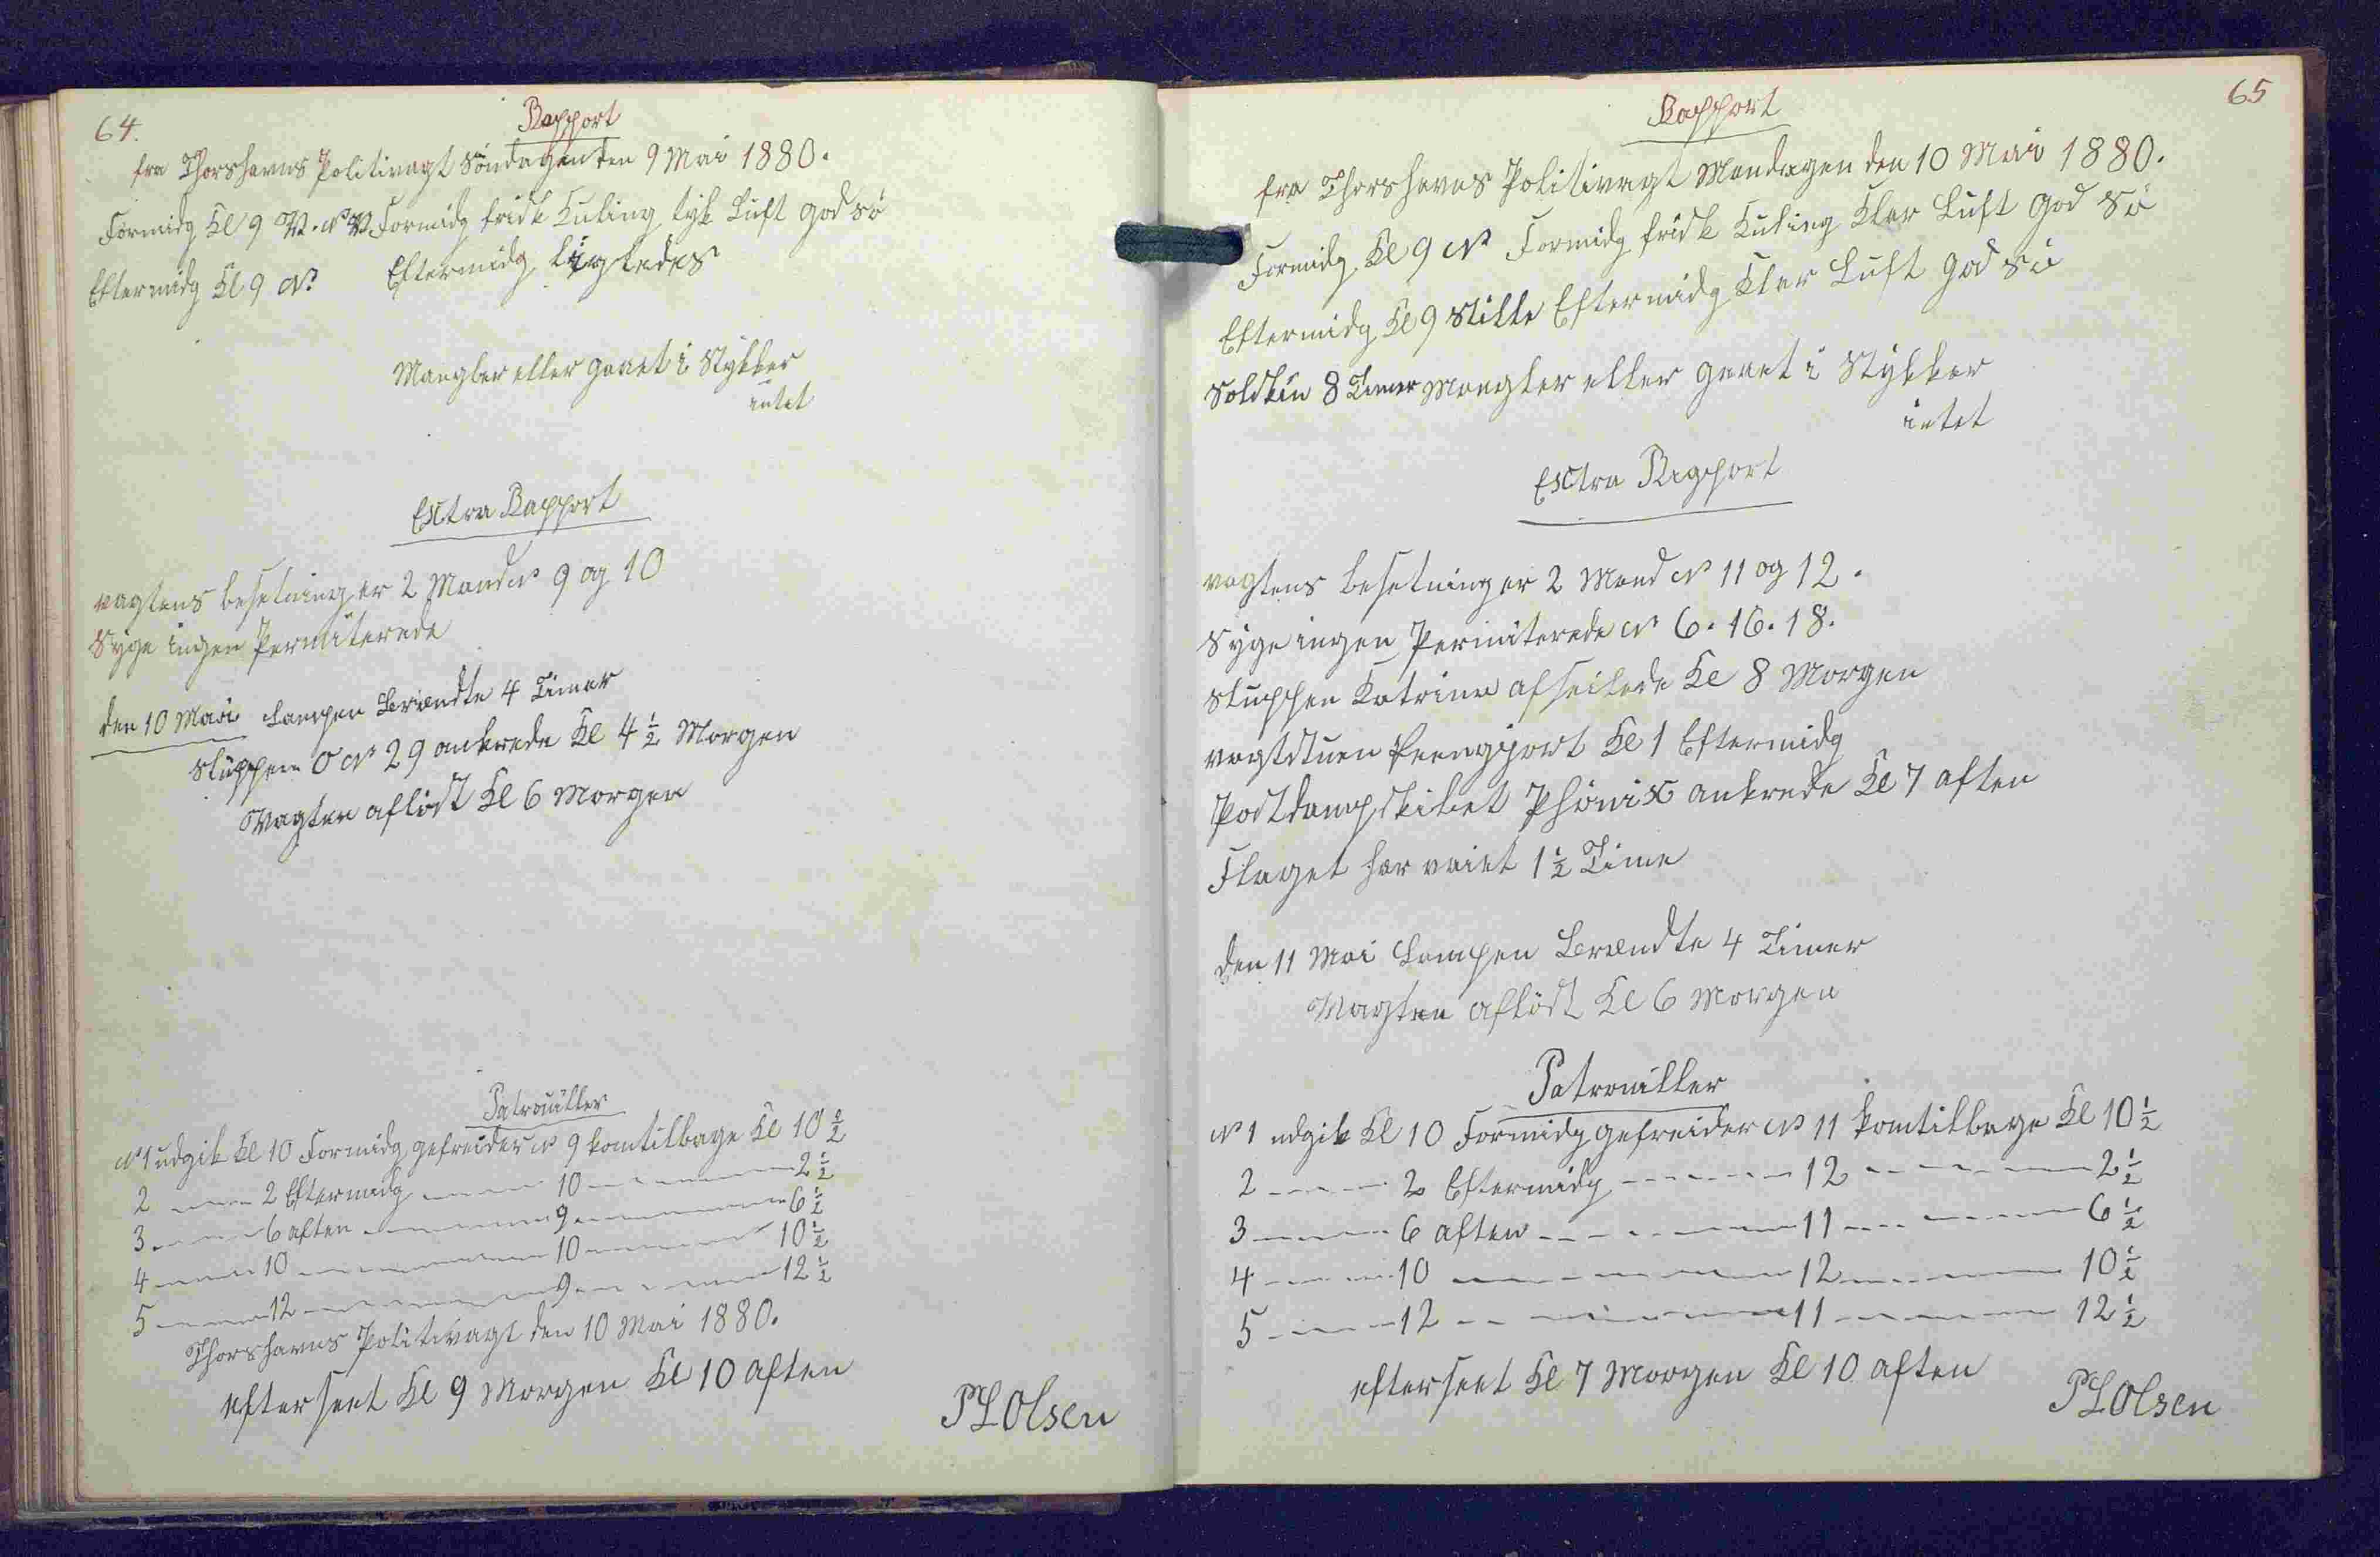 64.
Rapport
fra Thorshavns Politivagt Söndagen den 9 Mai 1880.
Formidg Kl 9 V.N.V. Formidg frisk Kuling tyk Luft god Sö
Eftermidg Kl 9 N. Eftermidg ligeledes
Mangler eller gaaet i Stykker
intet
Extra Rapport
vagtens besetning er 2 Mand No 9 og 10
Syge ingen Permiterede
den 10 Mai Lampen Brændte 4 Timer
Sluppen No 29 ankrede Kl 4 1/2 Morgen
Vagten aflöst Kl 6 Morgen
Patrouiller
No 1 udgik Kl 10 Formidg gefreider No 9 kom tilbage Kl 10 1/2
2 — 2 Eftermidg — 10 — 2 1/2
3 — 6 aften — 9 — 6 1/2
4 — 10 — 10 — 10 1/2
5 — 12 — 9 — 12 1/2
Thorshavns Politivagt den 10 Mai 1880.
efterseet Kl 9 Morgen Kl 10 aften
PLOlsen
65
Rapport
fra Thorshavns Politivagt Mandagen den 10 Mai 1880.
Formidg Kl 9 N. Formidg frisk Kuling Klar Luft god Sö
Eftermidg Kl 9 Stille Eftermidg Klar Luft god Sö
Solskin 8 Timer Mangler eller gaaet i Stykker
intet
Extra Rapport
vagtens besetning er 2 Mand No 11 og 12.
Syge ingen Permiterede No 6. 16. 18.
Sluppen Katrina afseilede Kl 8 Morgen
vagtstuen Reengjort Kl 1 Eftermidg
Postdampskibet Phönix ankrede Kl 7 aften
Flaget har vaiet 1 1/2 Time
den 11 Mai Lampen Brændte 4 Timer
Vagten aflöst Kl 6 Morgen
Patrouiller
No 1 udgik Kl 10 Formidg gefreider No 11 kom tilbage Kl 10 1/2
2 — 2 Eftermidg — 12 — 2 1/2
3 — 6 aften — 11 — 6 1/2
4 — 10 — 12 — 10 1/2
5 — 12 — 11 — 12 1/2
efterseet Kl 7 Morgen Kl 10 aften
PLOlsen